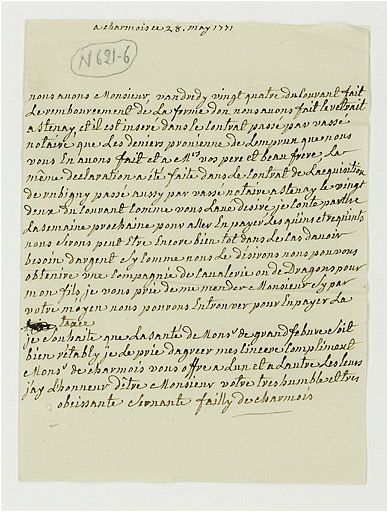 a charmois ce 28. may 1771
N 621-6
nous auons Monsieur, vandredy vingt quatre du Courant fait
Le remboursement de La ferme don nous auons fait le retrait
a Stenay et il est inseré dans le Contrat passé par vassé
notaire que Les deniers provienne de Lemprun que nous
vous En auons fait et a Mrs vos pere et beau frere, La
même declaration a été faite dans le Contrat de Laquisition
de passé aussy par vassé notaire a Stenay le vingt
deux du Courant Comme vous Laué desiré, je Conte partir
La semaine prochaine pour aller En payer Les quins et requints
nous serons peut Etre Encore bien tot dans Le cas dauoir
besoin dargent sy Comme nous Le desirons nous pouvons
obtenire une Compagnie de Caualerie ou de Dragons pour
mon fils, je vous prie de me mender Monsieur sy par
votre moyen nous pourrons En trouver pour En payer La
taxe
je souhaite que La santé de Monsr de grandfebure soit
bien rétably, je Le prie dagréer mes sincere Compliment
Monsr de charmois vous offre a Lun et a Lautre Les siens
jay Lhonneur dêtre Monsieur votre tres humble et tres
obeissante servante failly de charmois